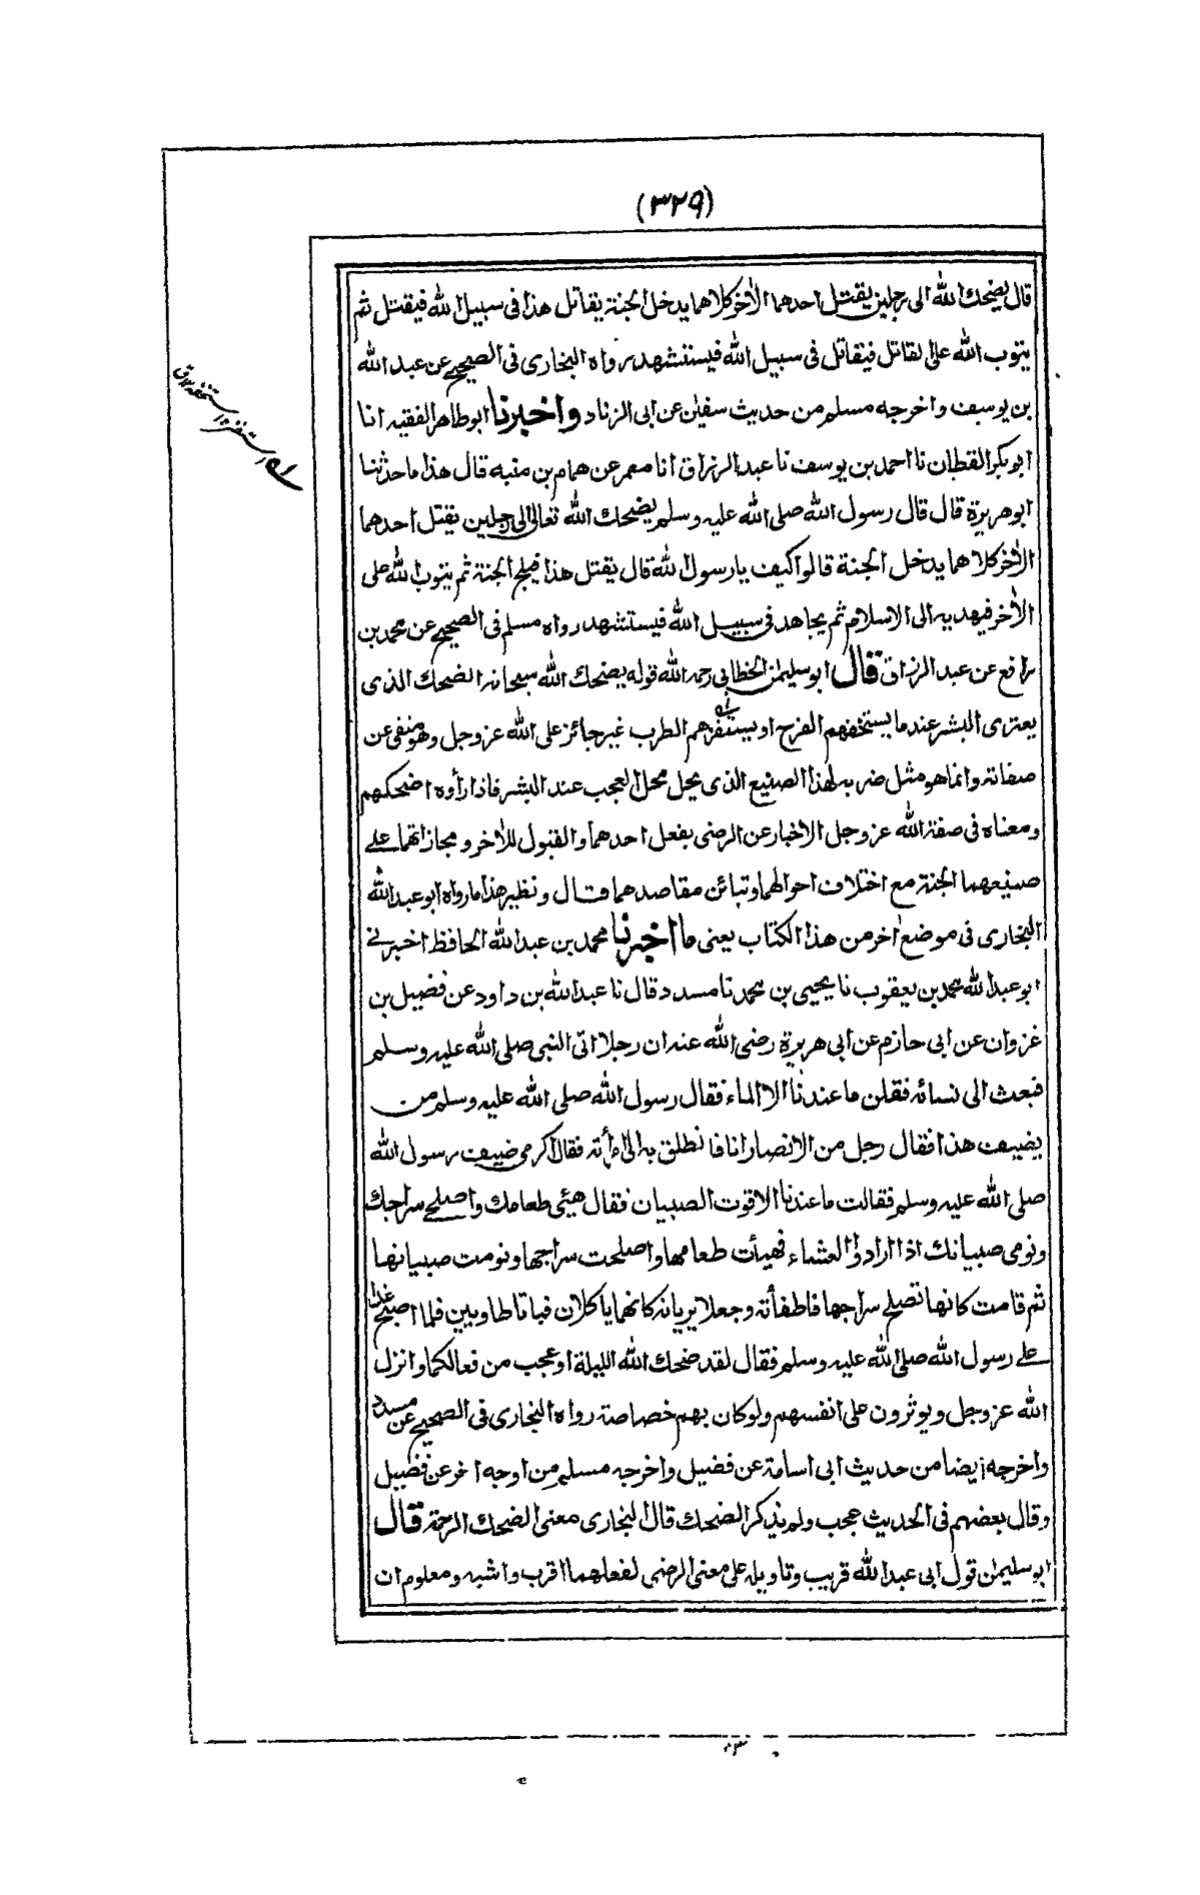 (٣٢٩)
قال يضحك الله الى رجلين يقتل احدهما الأخر كلاهما يدخل الجنة يقاتل هذا فى سبيل الله فيقتل ثم
يتوب الله على القاتل فيقاتل فى سبيل الله فيستشهد رواه البخارى فى الصحيح عن عبد الله
بن يوسف واخرجه مسلم من حديث سفين عن ابى الزناد واخبرنا ابو طاهر الفقيه انا
ابو بكر القطان نا احمد بن يوسف نا عبد الرزاق انا معمر عن همام بن منبه قال هذا ما حدثنا
ابو هريرة قال قال رسول الله صلى الله عليه وسلم يضحك الله تعالى الى رجلين يقتل احدهما
الأخر كلاهما يدخل الجنة قالوا كيف يا رسول الله قال يقتل هذا فيلج الجنة ثم يتوب الله على
الأخر فيهديه الى الاسلام ثم يجاهد فى سبيل الله فيستشهد رواه مسلم فى الصحيح عن محمد بن
رافع عن عبد الرزاق قال ابو سليمن الخطابى رحمه الله قوله يضحك الله سبحانه الضحك الذى
يعترى البشر عند ما يستخفهم الفرح او يستفزهم الطرب غير جائز على الله عز وجل وهو منفى عن
صفاته وانما هو مثل ضربه لهذا الصنيع الذى يحل محل العجب عند البشر فاذا رأوه اضحكهم
ومعناه فى صفة الله عز وجل الاخبار عن الرضى بفعل احدهما والقبول للأخر ومجازاتهما على
صنيعهما الجنة مع اختلاف احوالهما وتبائن مقاصدهما قال ونظير هذا ما رواه ابو عبد الله
البخارى فى موضع اخر من هذا الكتاب يعنى ما اخبرنا محمد بن عبد الله الحافظ اخبرنى
ابو عبد الله محمد بن يعقوب نا يحيى بن محمد نا مسدد قال نا عبد الله بن داود عن فضيل بن
غزوان عن ابى حازم عن ابى هريرة رضى الله عنه ان رجلا اتى النبى صلى الله عليه وسلم
فبعث الى نسائه فقلن ما عندنا الا الماء فقال رسول الله صلى الله عليه وسلم من
يضيف هذا فقال رجل من الانصار انا فانطلق به الى امرأته فقال اكرمى ضيف رسول الله
صلى الله عليه وسلم فقالت ما عندنا الا قوت الصبيان فقال هيئى طعامك واصلحى سراجك
ونومى صبيانك اذا ارادوا العشاء فهيأت طعامها واصلحت سراجها ونومت صبيانها
ثم قامت كانها تصلح سراجها فاطفأته وجعلا يريانه كانهما يأكلان فباتا طاويين فلما اصبح غدا
على رسول الله صلى الله عليه وسلم فقال لقد ضحك الله الليلة او عجب من فعالكما وانزل
الله عز وجل ويوثرون على انفسهم ولو كان بهم خصاصة رواه البخارى فى الصحيح عن مسدد
واخرجه ايضا من حديث ابى اسامة عن فضيل واخرجه مسلم من اوجه اخر عن فضيل
وقال بعضهم فى الحديث عجب ولم يذكر الضحك قال البخارى معنى الضحك الرحمة قال
ابو سليمن قول ابى عبد الله قريب وتاويله على معنى الرضى لفعلهما اقرب واشبه ومعلوم ان